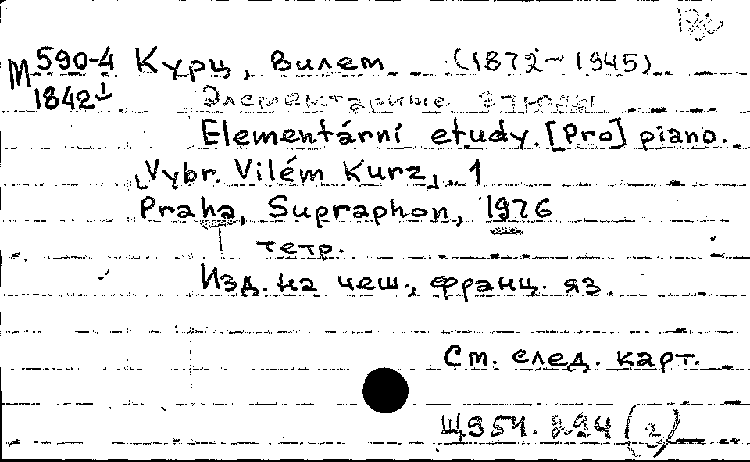 М 590-4 Курц, Вилем (1872-1945)
1842-1
Элементарные этюды
Elementární etudy. [Pro] piano.
Vybr. Vilém Kurz, 1
Praha, Supraphon, 1976
тетр.
Изд. на чеш., франц. яз.
См. след. карт.
Щ954.224 (3)